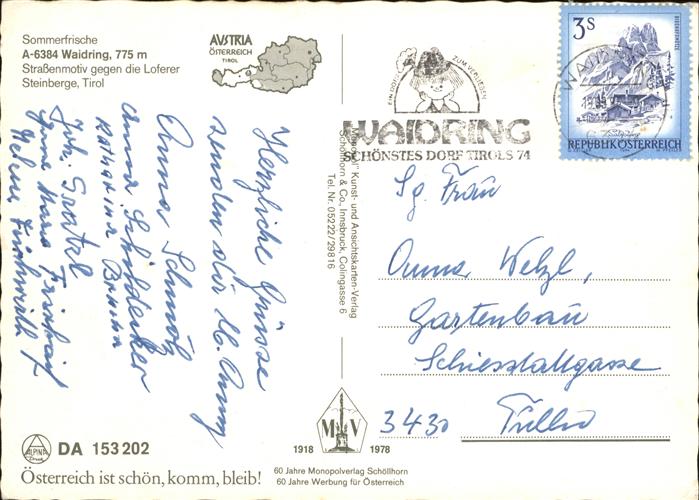 Sommerfrische
A-6384 Waidring, 775 m
Straßenmotiv gegen die Loferer
Steinberge, Tirol
AUSTRIA
ÖSTERREICH
TIROL
EIN DORF
ZUM VERLIEBEN
WAIDRING
SCHÖNSTES DORF TIROLS 74
3S
REPUBLIK ÖSTERREICH
Herzliche Grüsse
senden dir lb. Anny
Anna Schmölz
Anna
Katharina
Joh.
Maria
Helene
"Monopol" Kunst- und Ansichtskarten-Verlag
Schöllhorn & Co., Innsbruck, Colingasse 6
Tel. Nr. 05222/29816
Sg. Frau
Anna Welzl,
Gartenbau
Schiesstattgasse
3430 Tulln
ALPINA
Druck
DA 153 202
M V
1918 1978
Österreich ist schön, komm, bleib!
60 Jahre Monopolverlag Schöllhorn
60 Jahre Werbung für Österreich